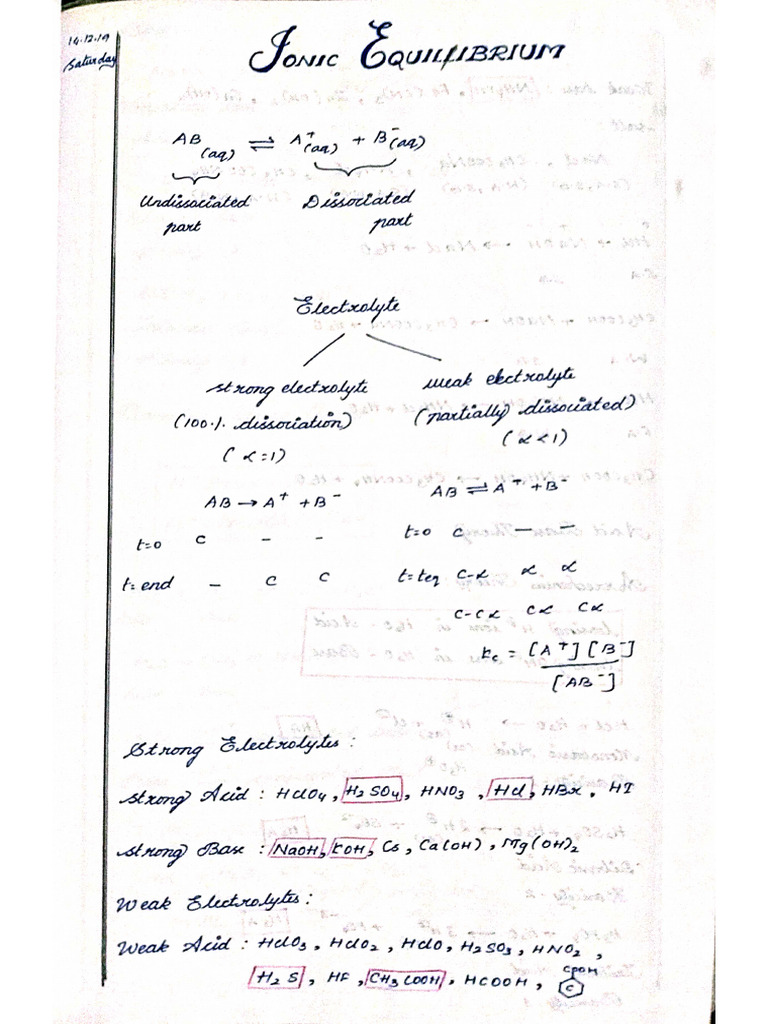 14.12.19
Saturday
IONIC EQUILIBRIUM
AB(aq) ⇌ A⁺(aq) + B⁻(aq)
Undissociated part
Dissociated part
Electrolyte
strong electrolyte
(100% dissociation)
(α=1)
weak electrolyte
(partially dissociated)
(α<1)
AB → A⁺ + B⁻
t=0 C - -
t=end - C C
AB ⇌ A⁺ + B⁻
t=0 C — —
t=teq C-α α α
C-Cα Cα Cα
Kc = [A⁺][B⁻]
[AB⁻]
Strong Electrolytes:
Strong Acid : HClO4, H2SO4, HNO3, HCl, HBr, HI
Strong Base : NaOH, KOH, Cs, Ca(OH), Mg(OH)2
Weak Electrolytes:
Weak Acid : HClO3, HClO2, HClO, H2SO3, HNO2,
H2S, HF, CH3COOH, HCOOH,
COOH
C